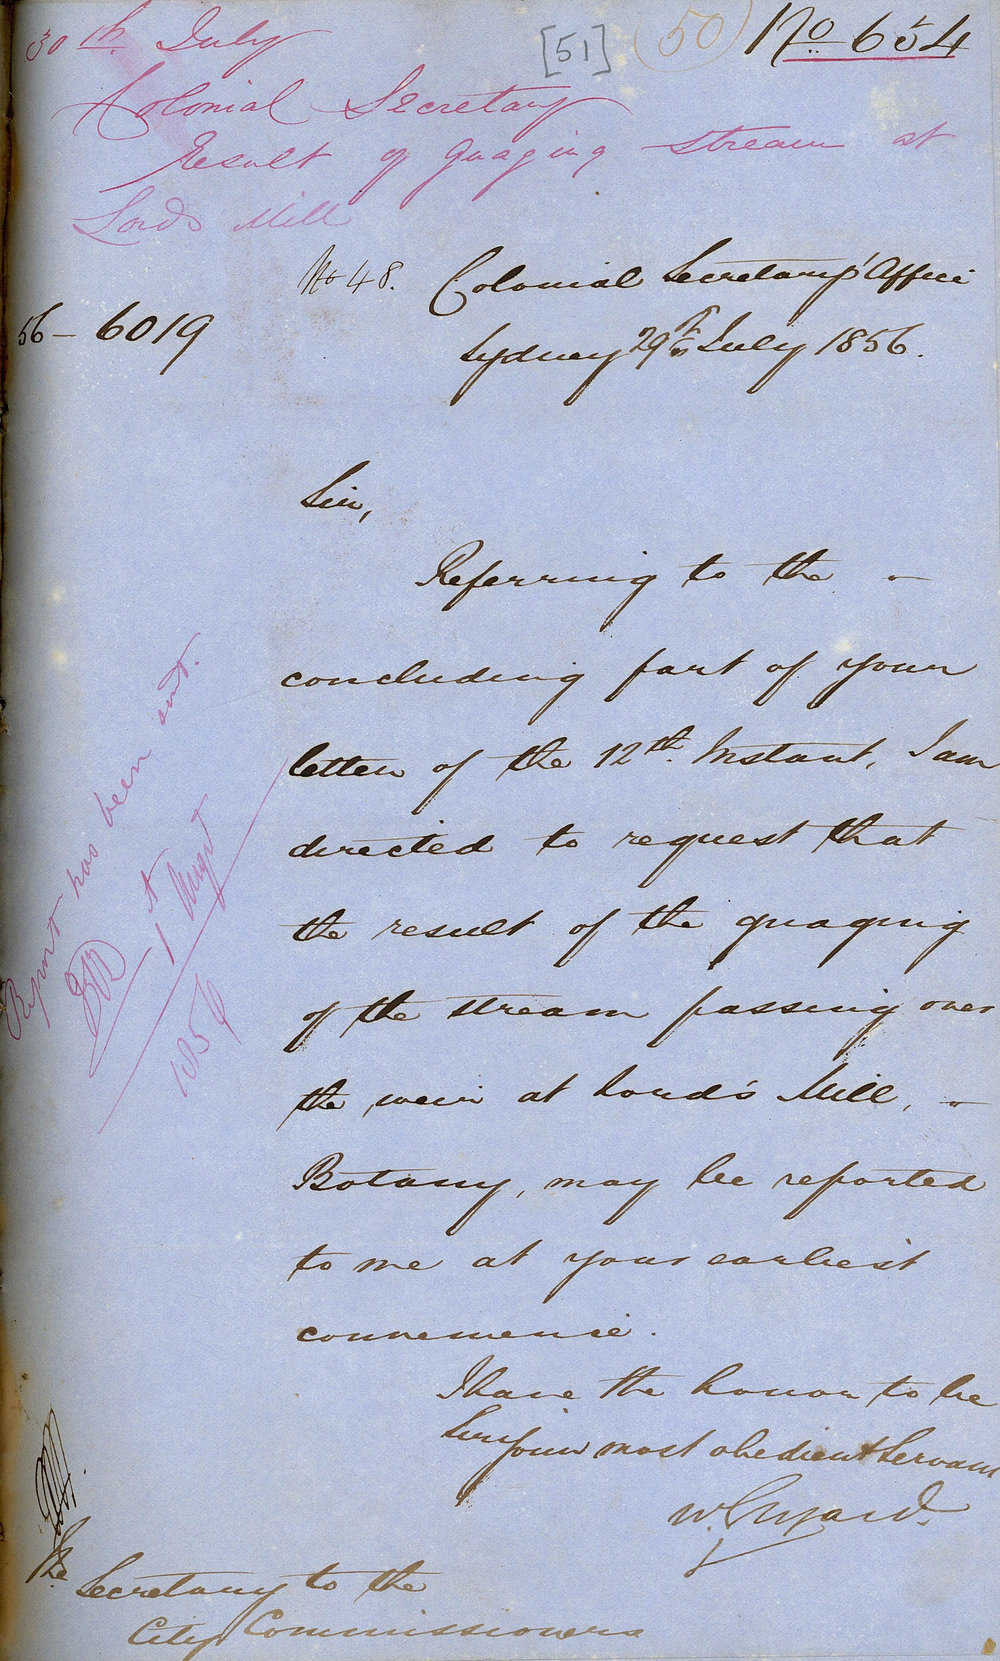 30th July
[51] 50 No 654
Colonial Secretary
Result of Guaging stream at
Lords Mill
No 48. Colonial Secretary's Office
56-6019
Sydney 29th July 1856.
Sir,
Referring to the -
concluding part of your
letter of the 12th. Instant, I am
directed to request that
the result of the guaging
of the stream passing over
the weir at Lord's Mill, -
Botany, may be reported
to me at your earliest
convenience.
I have the honor to be
Sir Your most obedient Servant
W. Elyard.
Report has been sent.
1 Augst
1856
The
Secretary to the
City Commissioners